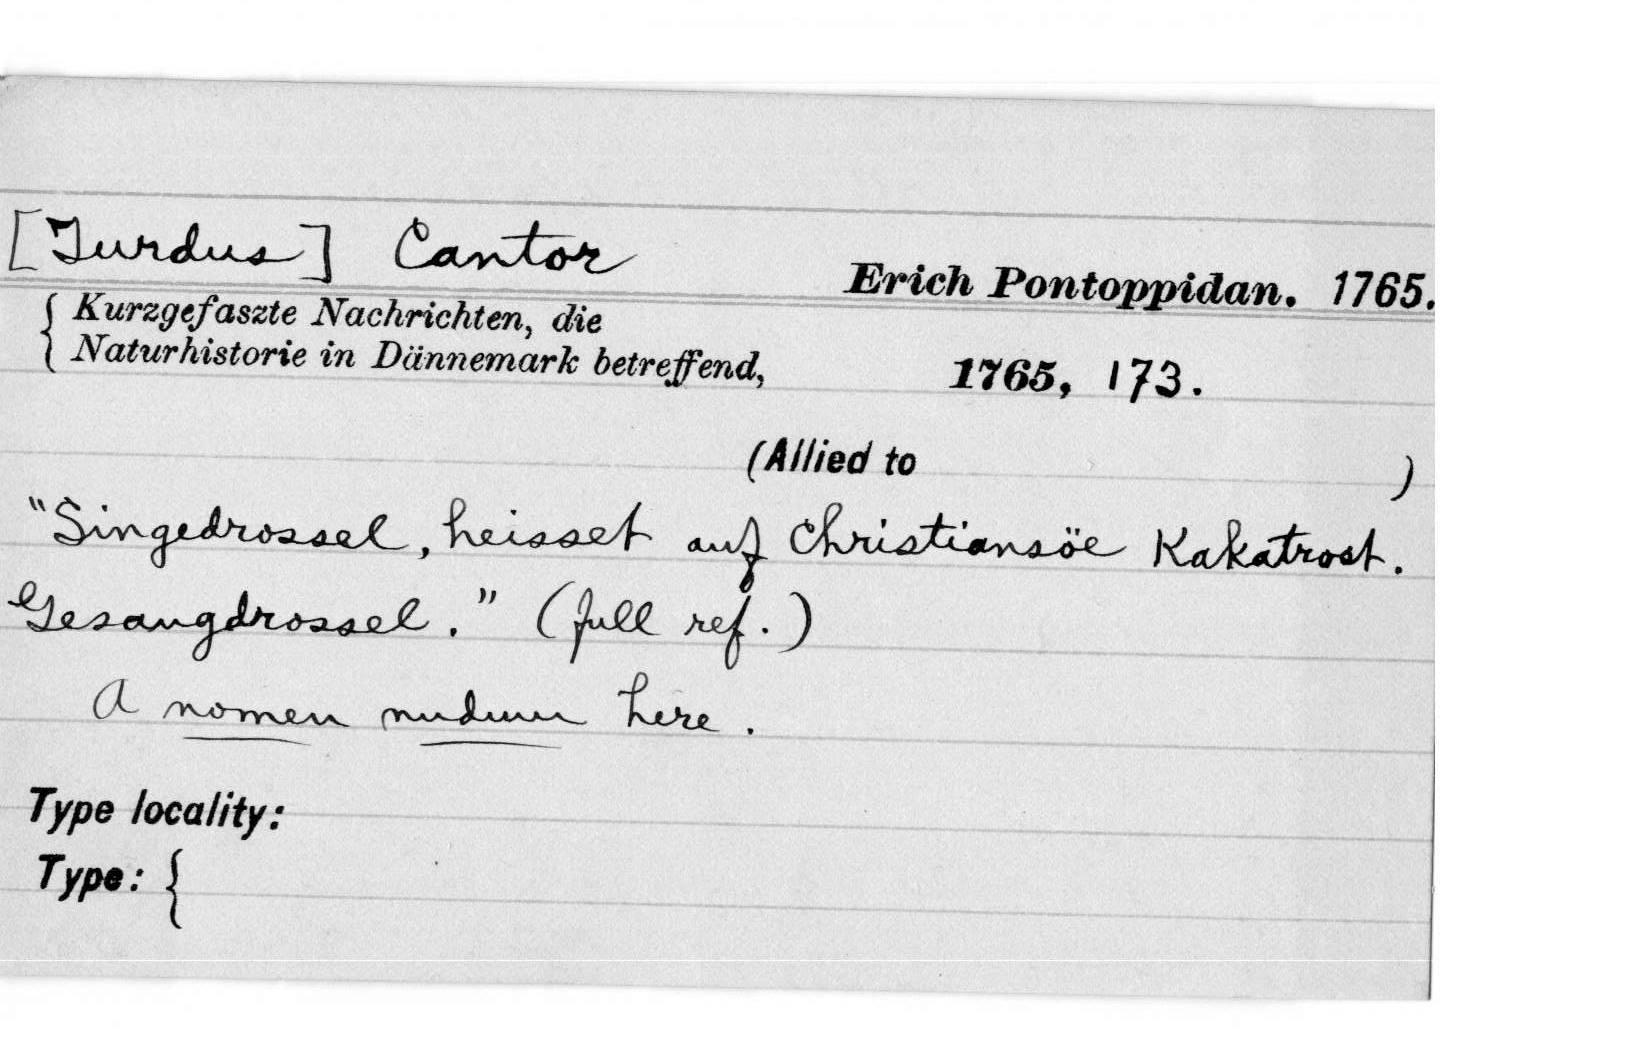 [Turdus] Cantor
Erich Pontoppidan. 1765.
{ Kurzgefaszte Nachrichten, die
Naturhistorie in Dännemark betreffend, 1765, 173.
(Allied to )
"Singedrossel, heisset auf Christiansöe Kakatrost.
Gesangdrossel." (full ref.)
A nomen nudum here.
Type locality:
Type: {